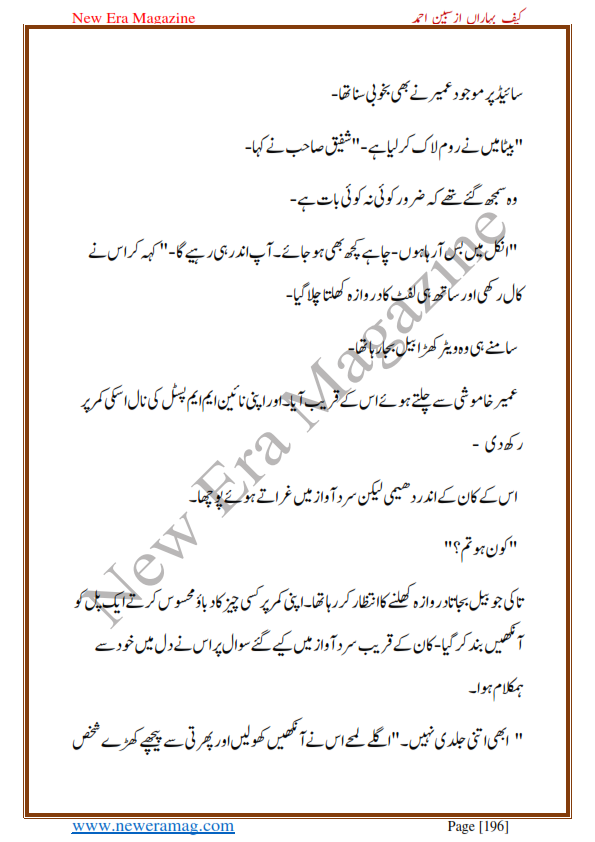 New Era Magazine
کیف بہاراں از سبین احمد
سائیڈ پر موجود عمیر نے بھی بخوبی سنا تھا-
"بیٹا میں نے روم لاک کر لیا ہے-" شفیق صاحب نے کہا-
وہ سمجھ گئے تھے کہ ضرور کوئی نہ کوئی بات ہے-
"انکل میں بس آ رہا ہوں- چاہے کچھ بھی ہو جائے۔ آپ اندر ہی رہیے گا-" کہہ کر اس نے
کال رکھی اور ساتھ ہی لفٹ کا دروازہ کھلتا چلا گیا-
سامنے ہی وہ ویٹر کھڑا بیل بجا رہا تھا-
عمیر خاموشی سے چلتے ہوئے اس کے قریب آیا۔ اور اپنی نائین ایم ایم پسٹل کی نال اسکی کمر پر
رکھ دی -
اس کے کان کے اندر دھیمی لیکن سرد آواز میں غراتے ہوئے پوچھا۔
"کون ہو تم؟"
تاکی جو بیل بجاتا دروازہ کھلنے کا انتظار کر رہا تھا۔ اپنی کمر پر کسی چیز کا دباؤ محسوس کرتے ایک پل کو
آنکھیں بند کر گیا- کان کے قریب سرد آواز میں کیے گئے سوال پر اس نے دل میں خود سے
ہمکلام ہوا۔
" ابھی اتنی جلدی نہیں۔" اگلے لمحے اس نے آنکھیں کھولیں اور پھرتی سے پیچھے کھڑے شخص
New Era Magazine
www.neweramag.com
Page [196]